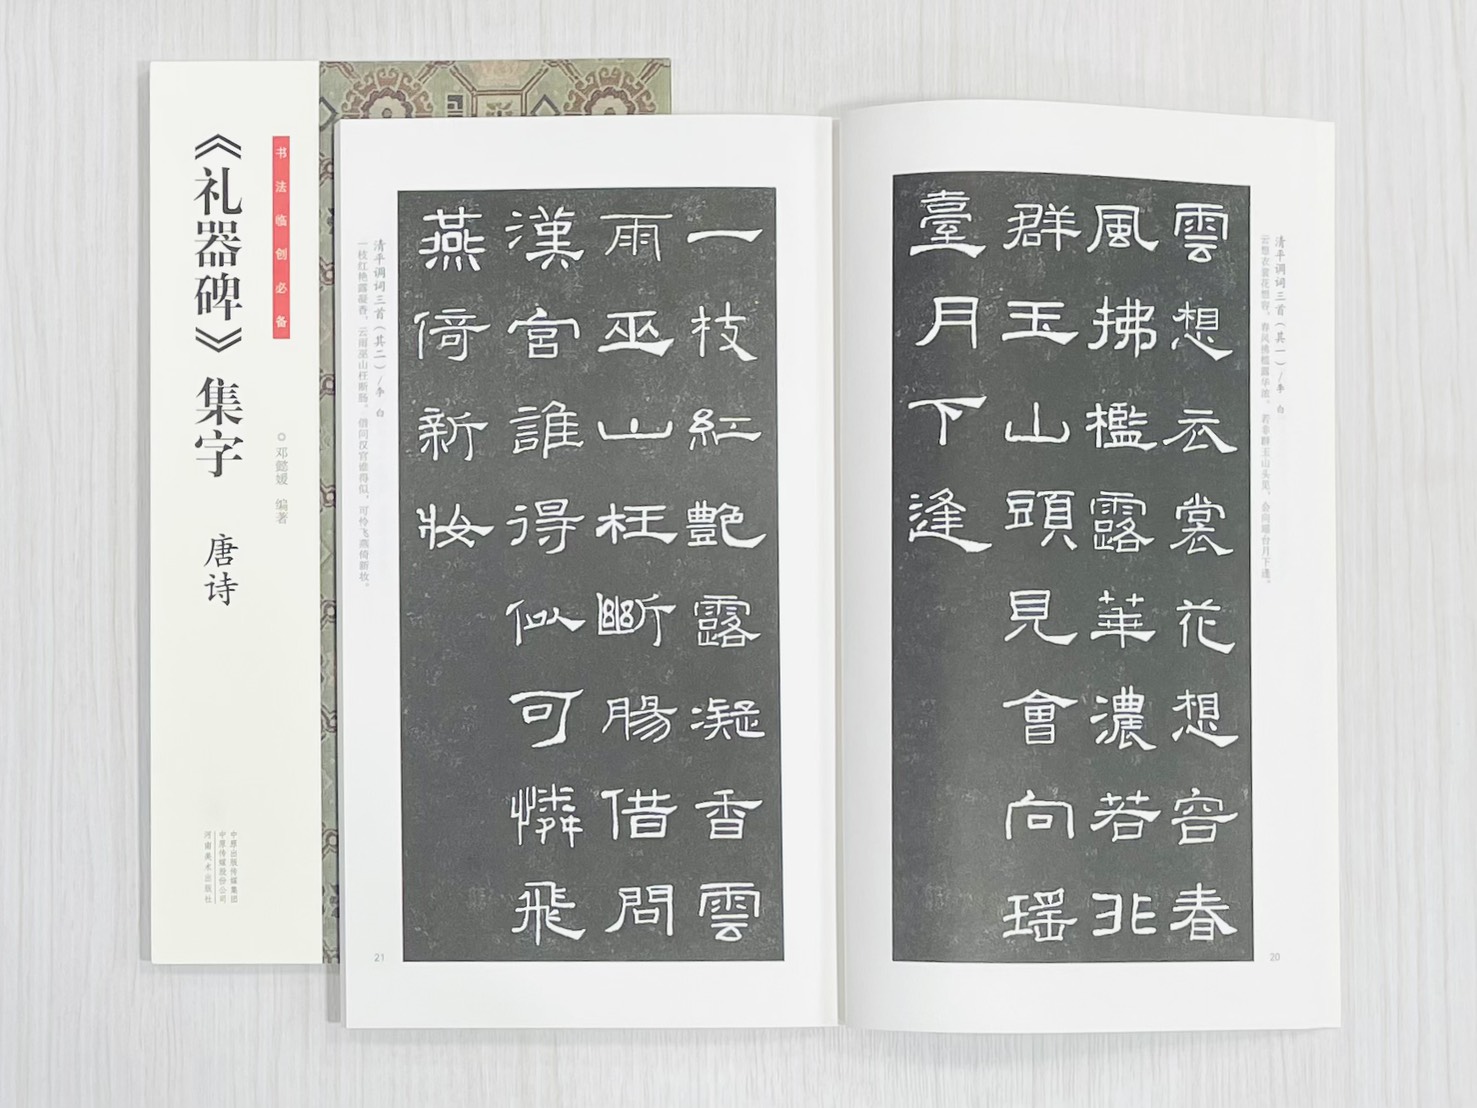 书法临创必备
《礼器碑》集字
唐诗
◎邓懿媛 编著
中原出版传媒集团
中原传媒股份公司
河南美术出版社
清平调词三首（其一）/李 白
云想衣裳花想容，春风拂槛露华浓。若非群玉山头见，会向瑶台月下逢。
雲想衣裳花想容春
風拂檻露華濃若非
群玉山頭見會向瑶
臺月下逢
20
一枝紅艷露凝香雲
雨巫山枉斷腸借問
漢宮誰得似可憐飛
燕倚新妝
清平调词三首（其二）/李 白
一枝红艳露凝香，云雨巫山枉断肠。借问汉宫谁得似，可怜飞燕倚新妆。
21